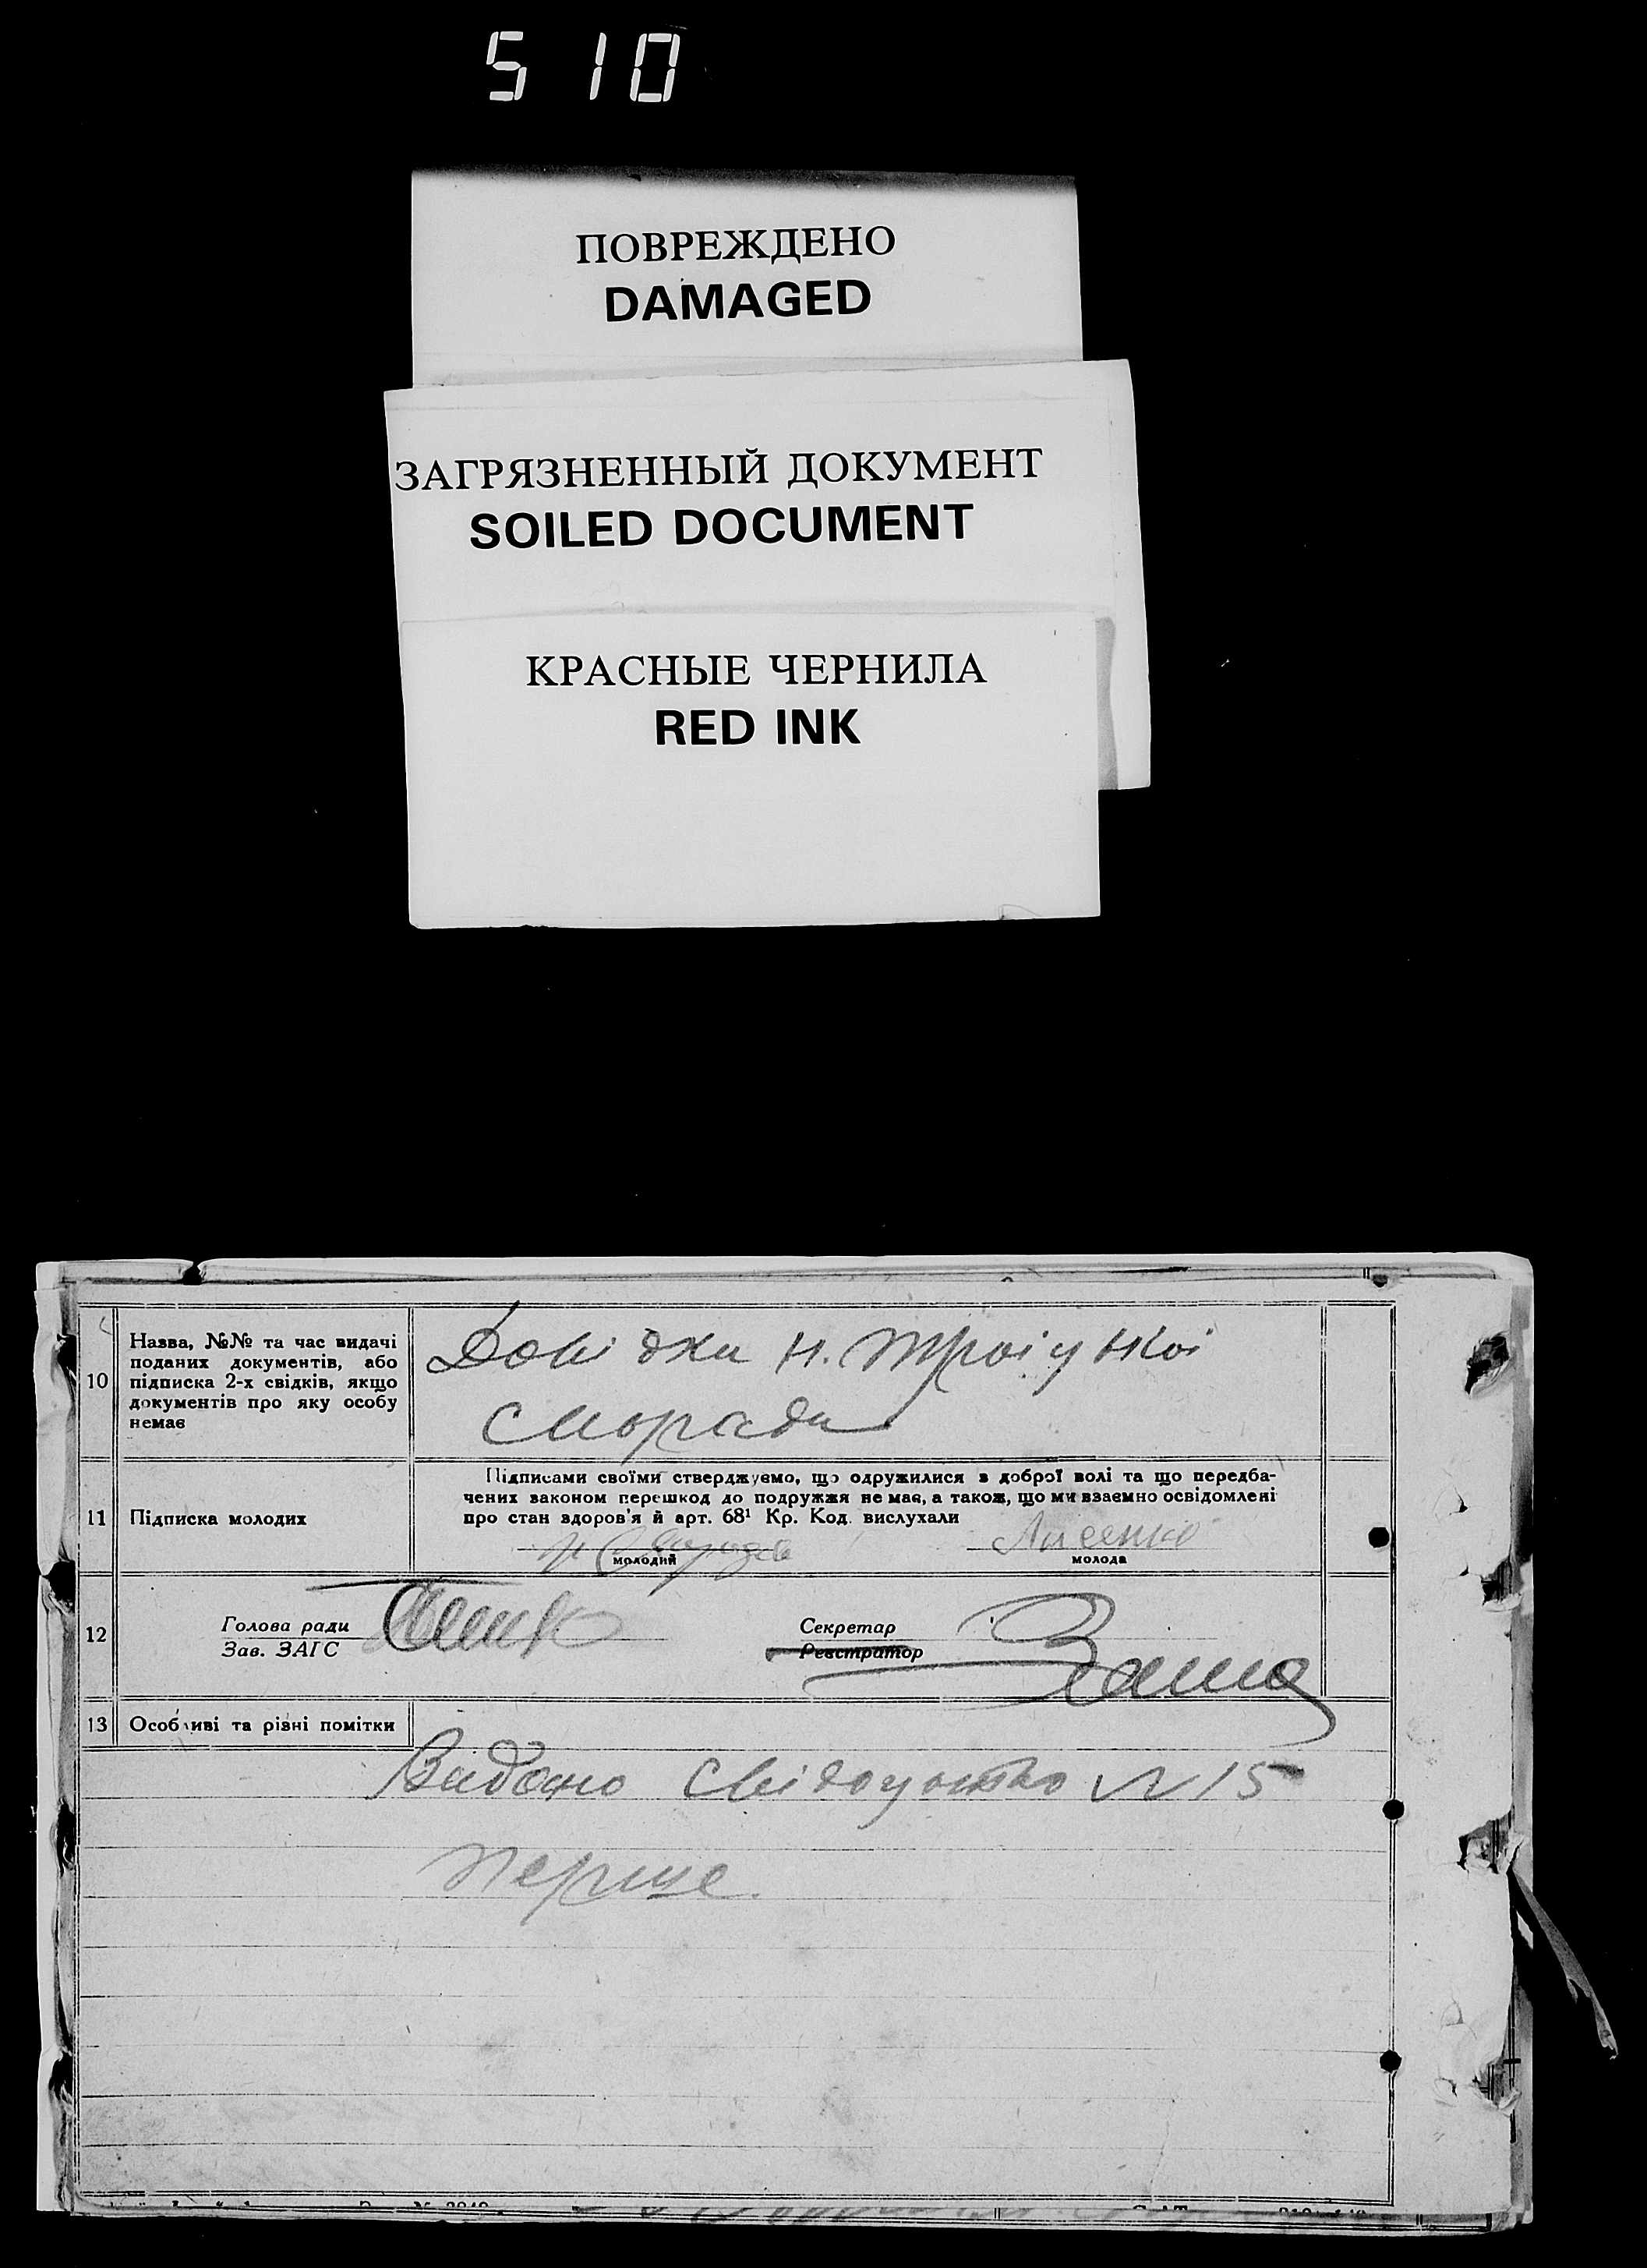 510
ПОВРЕЖДЕНО
DAMAGED
ЗАГРЯЗНЕННЫЙ ДОКУМЕНТ
SOILED DOCUMENT
КРАСНЫЕ ЧЕРНИЛА
RED INK
10
Назва, №№ та час видачі
поданих документів, або
підписка 2-х свідків, якщо
документів про яку особу
немає
Довідки Н. Троіцкоі
сільради
11
Підписка молодих
Підписами своїми стверджуємо, що одружилися з доброї волі та що передба-
чених законом перешкод до подружжя не має, а також, що ми взаємно освідомлені
про стан здоров'я й арт. 68¹ Кр. Код. вислухали
Лисенко
молодий молода
12
Голова ради
Зав. ЗАГС
Секретар
Реєстратор
13 Особливі та різні помітки
Видано свідоцтво № 15
перше.